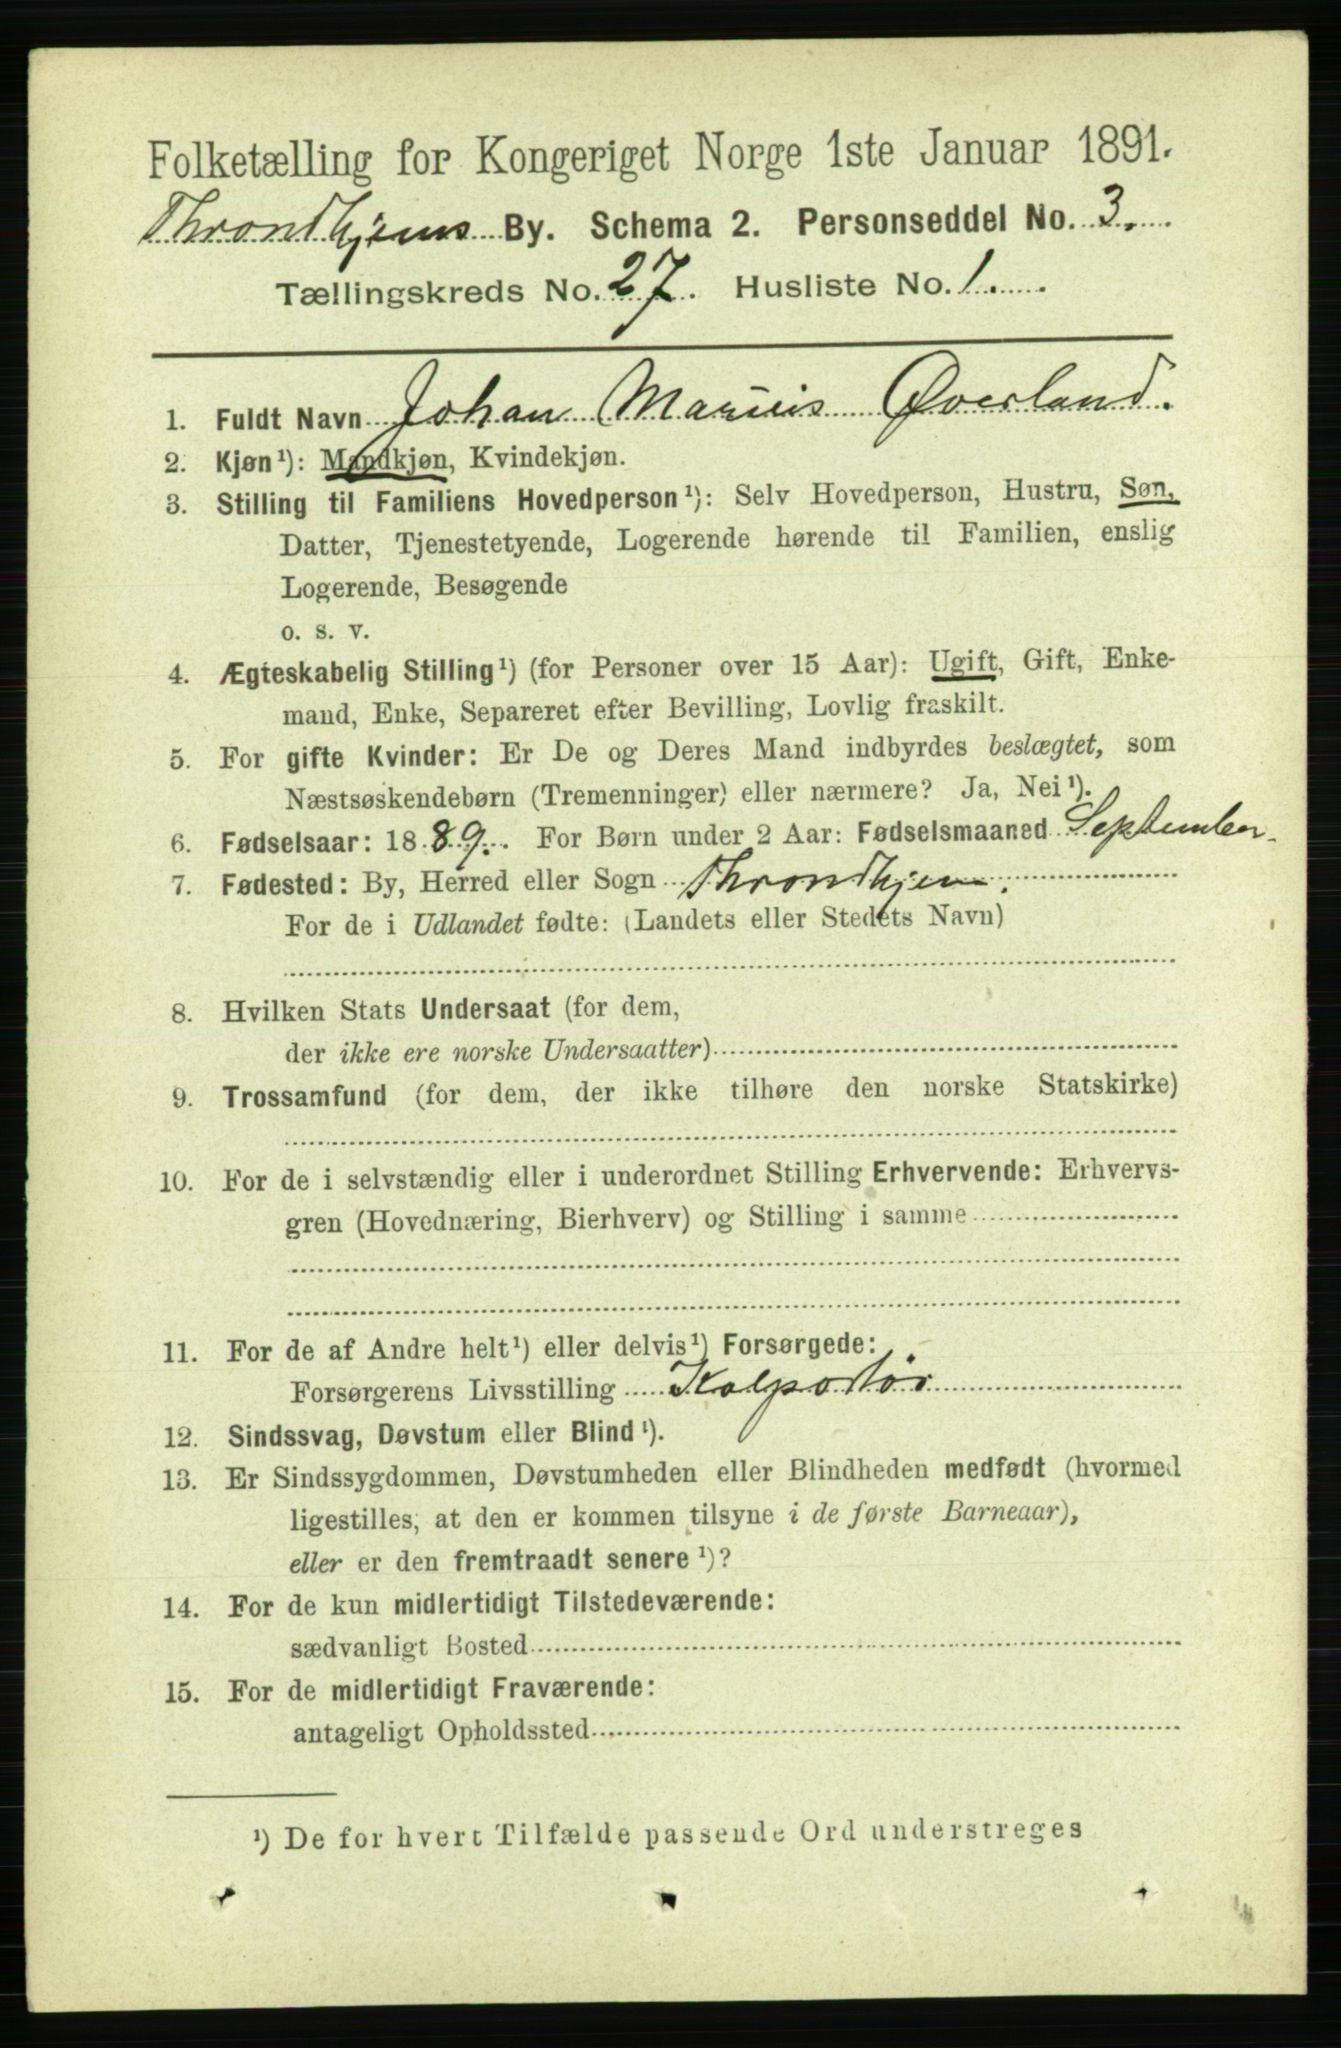 Folketælling for Kongeriget Norge 1ste Januar 1891.
Throndhjems By. Schema 2. Personseddel No. 3.
Tællingskreds No. 27. Husliste No. 1.
1. Fuldt Navn Johan Marius Øverland.
2. Kjøn¹): Mandkjøn, Kvindekjøn.
3. Stilling til Familiens Hovedperson¹): Selv Hovedperson, Hustru, Søn,
Datter, Tjenestetyende, Logerende hørende til Familien, enslig
Logerende, Besøgende
o. s. v.
4. Ægteskabelig Stilling¹) (for Personer over 15 Aar): Ugift, Gift, Enke-
mand, Enke, Separeret efter Bevilling, Lovlig fraskilt.
5. For gifte Kvinder: Er De og Deres Mand indbyrdes beslægtet, som
Næstsøskendebørn (Tremenninger) eller nærmere? Ja, Nei¹).
6. Fødselsaar: 1889. For Børn under 2 Aar: Fødselsmaaned September.
7. Fødested: By, Herred eller Sogn Throndhjem.
For de i Udlandet fødte: (Landets eller Stedets Navn)
8. Hvilken Stats Undersaat (for dem,
der ikke ere norske Undersaatter)
9. Trossamfund (for dem, der ikke tilhøre den norske Statskirke)
10. For de i selvstændig eller i underordnet Stilling Erhvervende: Erhvervs-
gren (Hovednæring, Bierhverv) og Stilling i samme
11. For de af Andre helt¹) eller delvis¹) Forsørgede:
Forsørgerens Livsstilling Kolportør
12. Sindssvag, Døvstum eller Blind¹).
13. Er Sindssygdommen, Døvstumheden eller Blindheden medfødt (hvormed
ligestilles, at den er kommen tilsyne i de første Barneaar),
eller er den fremtraadt senere¹)?
14. For de kun midlertidigt Tilstedeværende:
sædvanligt Bosted
15. For de midlertidigt Fraværende:
antageligt Opholdssted
¹) De for hvert Tilfælde passende Ord understreges